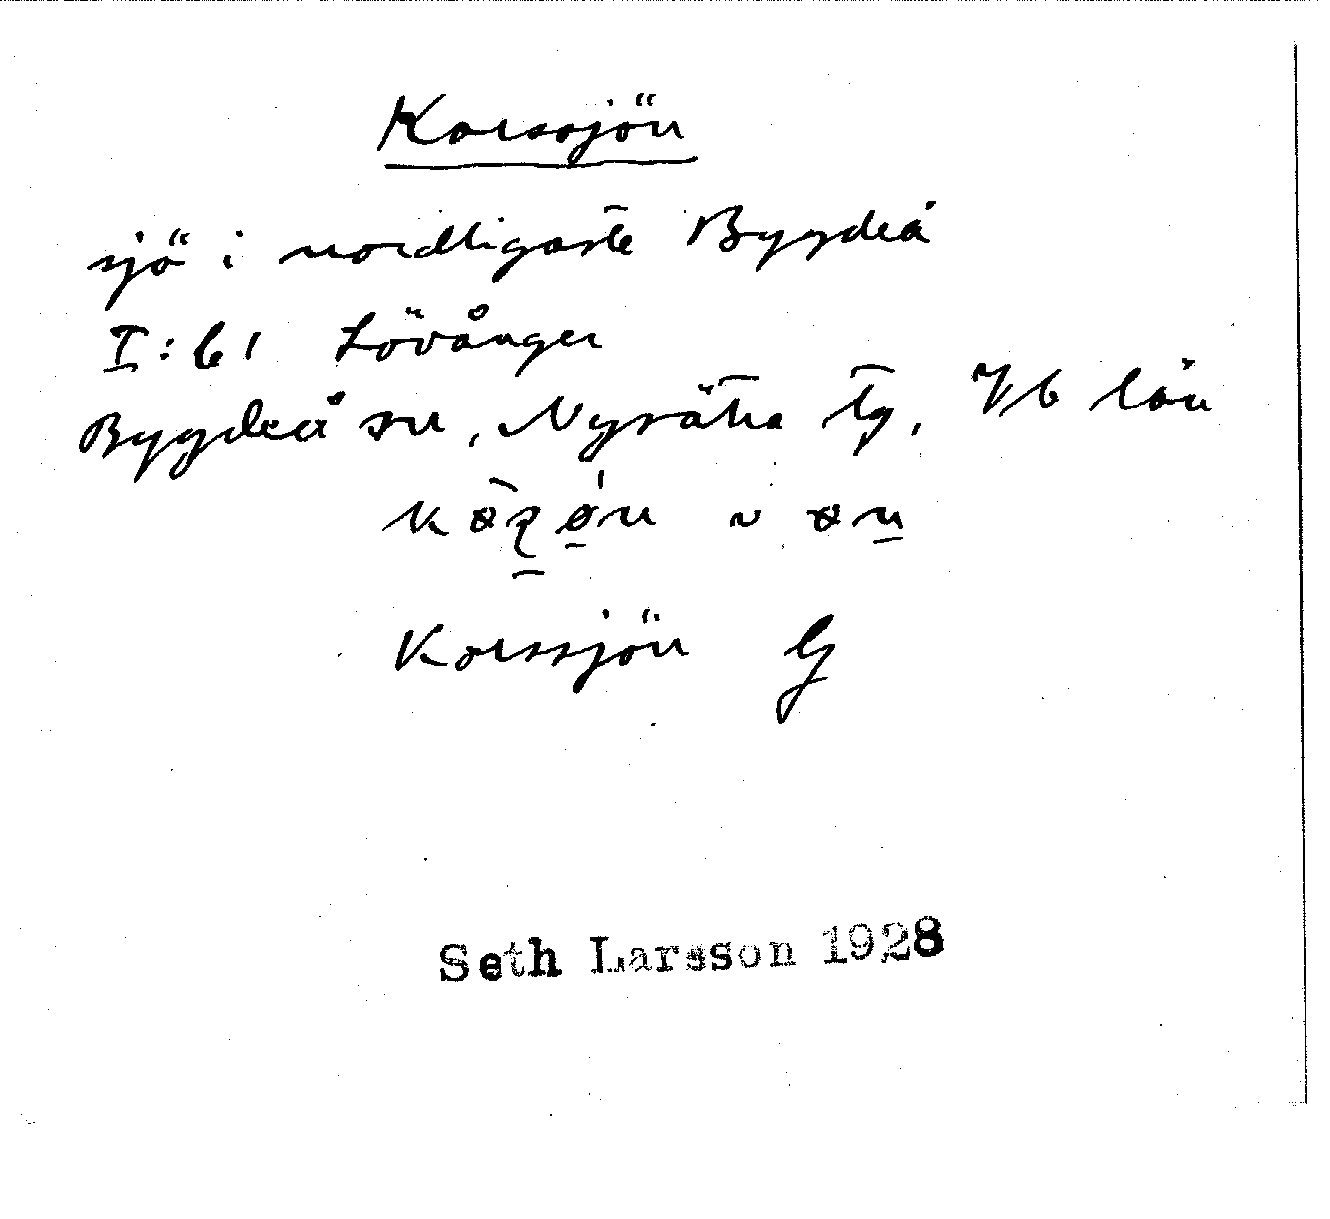 Korssjön
sjö i nordligaste Bygdeå
I:61 Lövånger
Bygdeå sn, Nysätra tg, Vb län
Korssjön G
Seth Larsson 1928